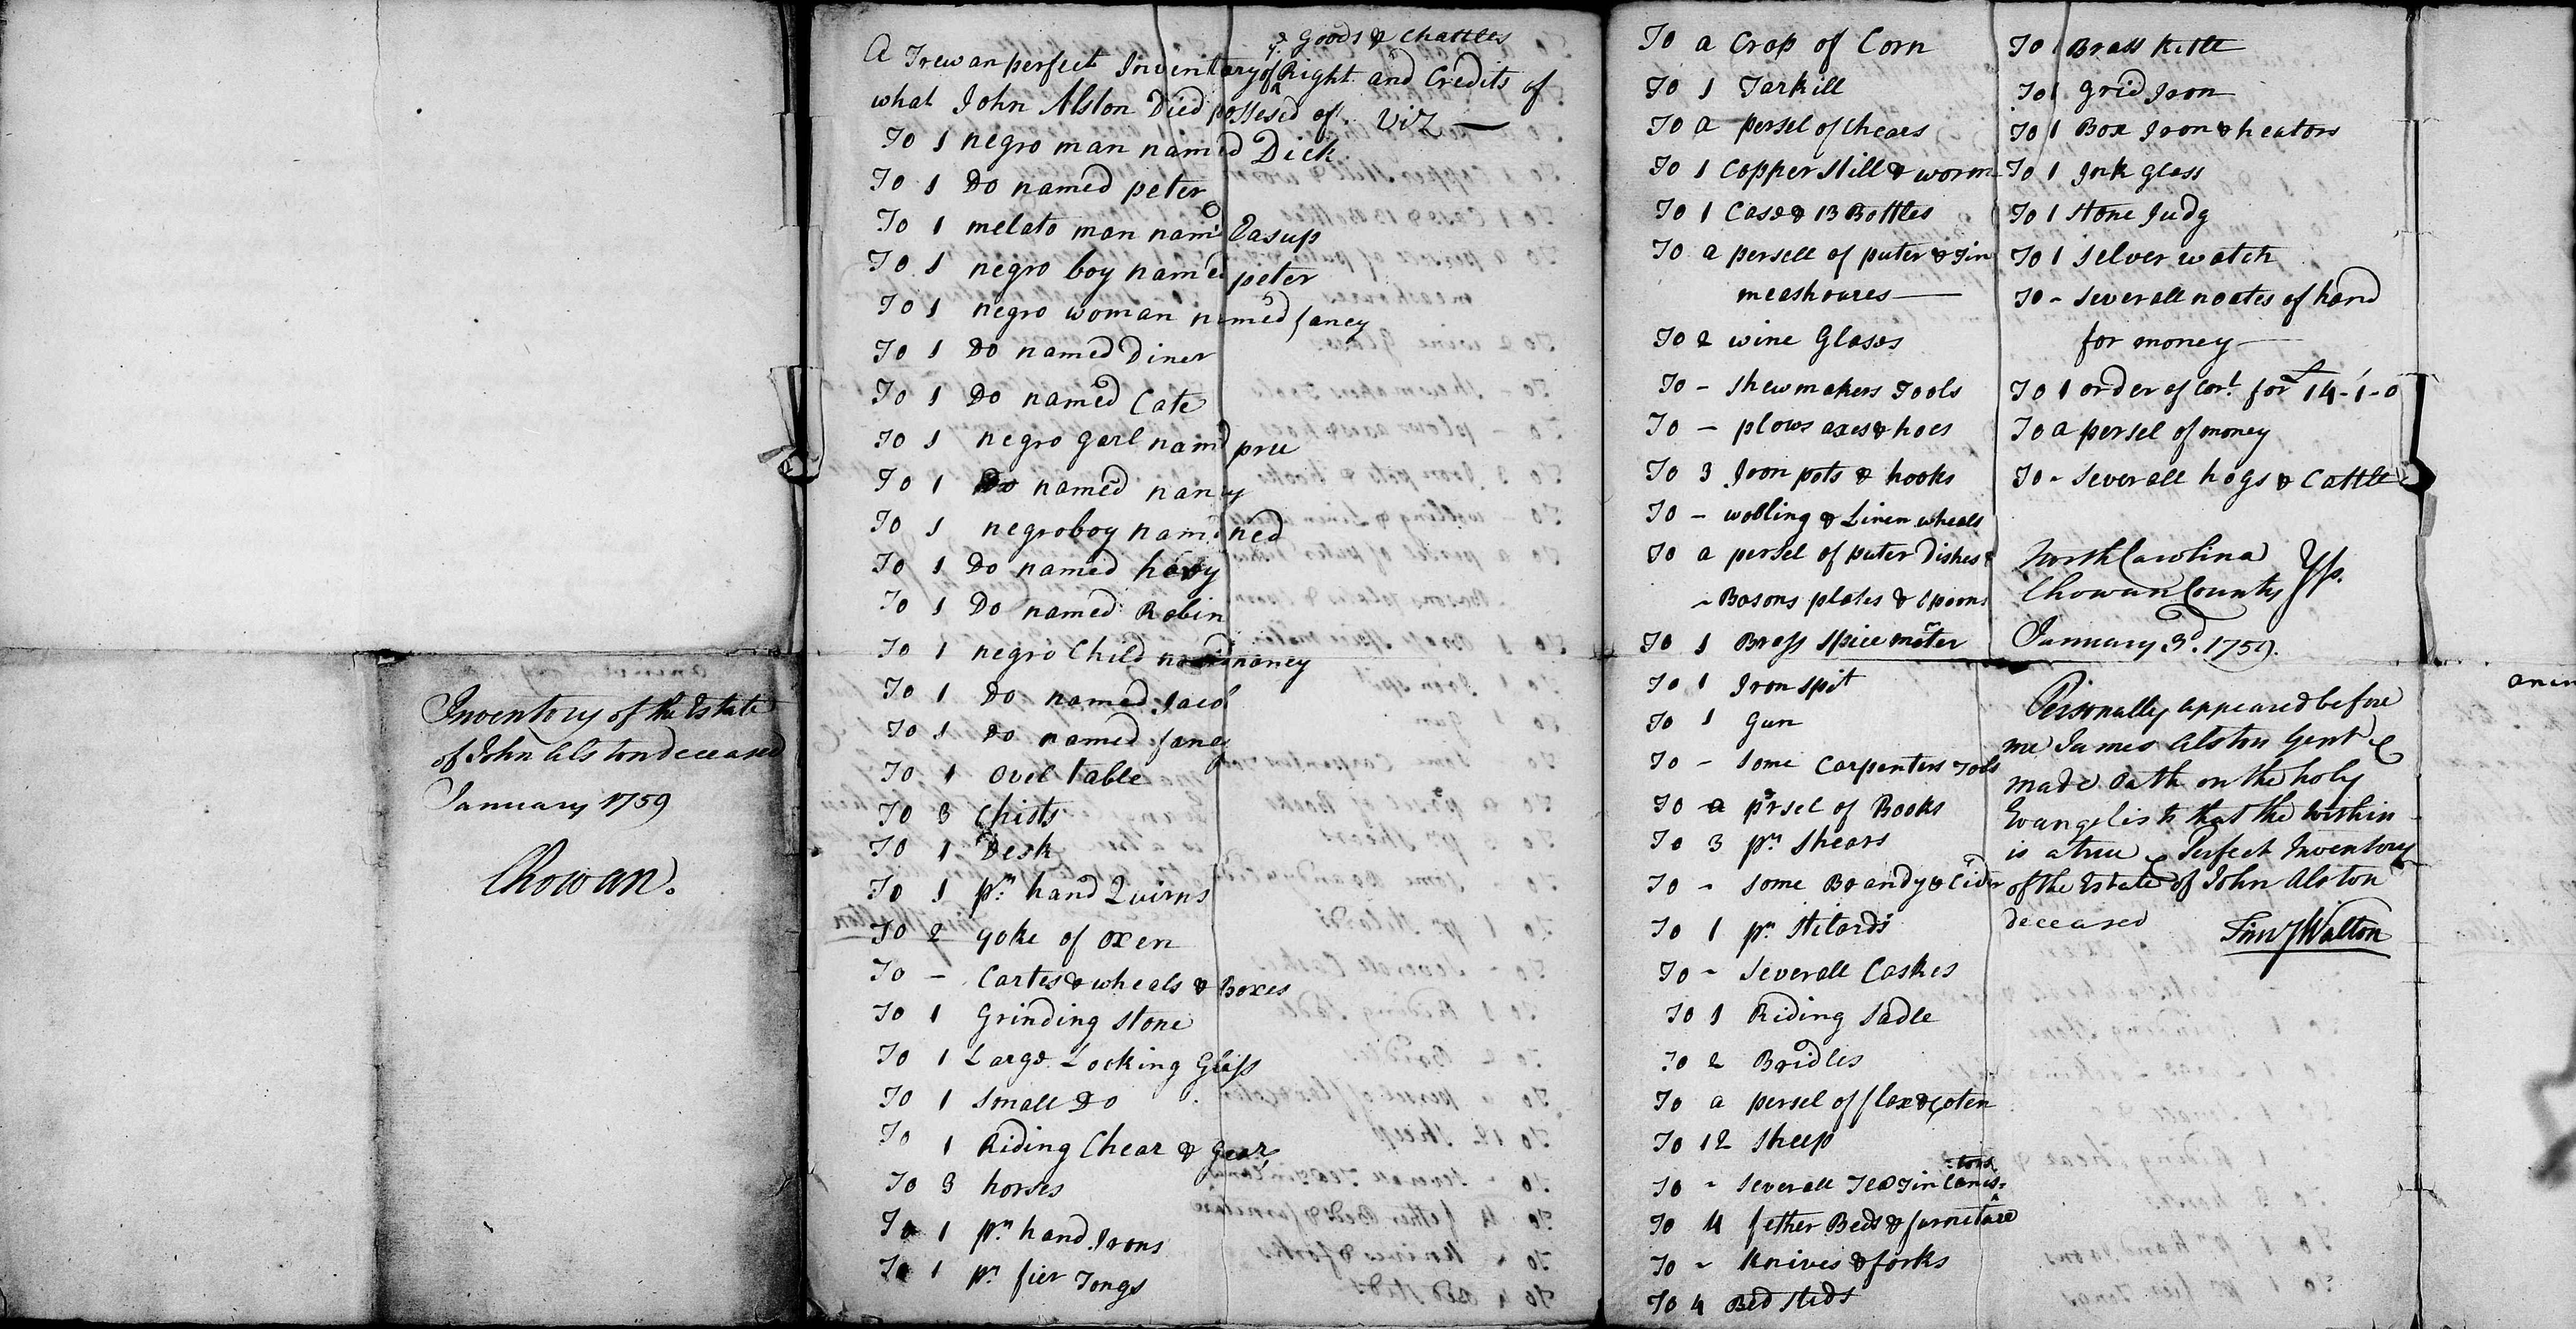 Inventory of the Estate
of John Alston deceased
January 1759
Chowan.
ye Goods & Chattles
A Trew an perfect Inventary of Right and Credits of
what John Alston Died possesed of Viz —
To 1 negro man named Dick
To 1 Do named peter
To 1 melato man named Easup
To 1 negro boy named peter
To 1 negro woman named faney
To 1 Do named Diner
To 1 Do named Cate
To 1 negro garl named prue
To 1 Do named nancy
To 1 negro boy named ned
To 1 Do named
To 1 Do named Robin
To 1 negro Child named naney
To 1 Do named Jacob
To 1 Do named faney
To 1 Ovel table
To 3 Chists
To 1 Desk
To 1 pr hand Quirns
To 2 yoke of oxen
To – Cartes & wheals & Boxes
To 1 Grinding stone
To 1 Large Looking Glass
To 1 small Do
To 1 Riding Chear & Gear
To 3 horses
To 1 pr hand Irons
To 1 pr fier Tongs
To a Crop of Corn
To 1 Tarkill
To a persel of Chears
To 1 Copper still & worm
To 1 Case & 13 Bottles
To a persell of puter & Tin
meashoures —
To 2 wine Glases
To – shewmakers Tools
To – plows axes & hoes
To 3 Iron pots & hooks
To – wolling & Linen wheals
To a persel of puter Dishes &
– Basons plates & spoons
To 1 Brass spice morter
To 1 Iron spit
To 1 Gun
To – some Carpenters Tols
To a persel of Books
To 3 pr shears
To – some Brandy & Cider
To 1 pr stilards
To – severall Caskes
To 1 Riding Sadle
To 2 Bridles
To a persel of flax & coten
To 12 sheep
To – severall Tea Tin Canis=
=tors
To 4 fether Beds & furnitare
To – knives & forks
To 4 Bed steds
To 1 Brass kitle
To 1 grid Iron
To 1 Box Iron & heators
To 1 Ink glass
To 1 stone Judg
To 1 selver watch
To – severall noates of hand
for money —
To 1 order of Cort for £14-1-0
To a persel of money
To – severall hogs & Cattle
North Carolina
Chowan County } Ss.
January 3d. 1759.
Personally appeared before
me James Alston Gent &
made Oath on the holy
Evangelists that the within
is a true & Perfect Inventory
of the Estate of John Alston
deceased
Timo Walton